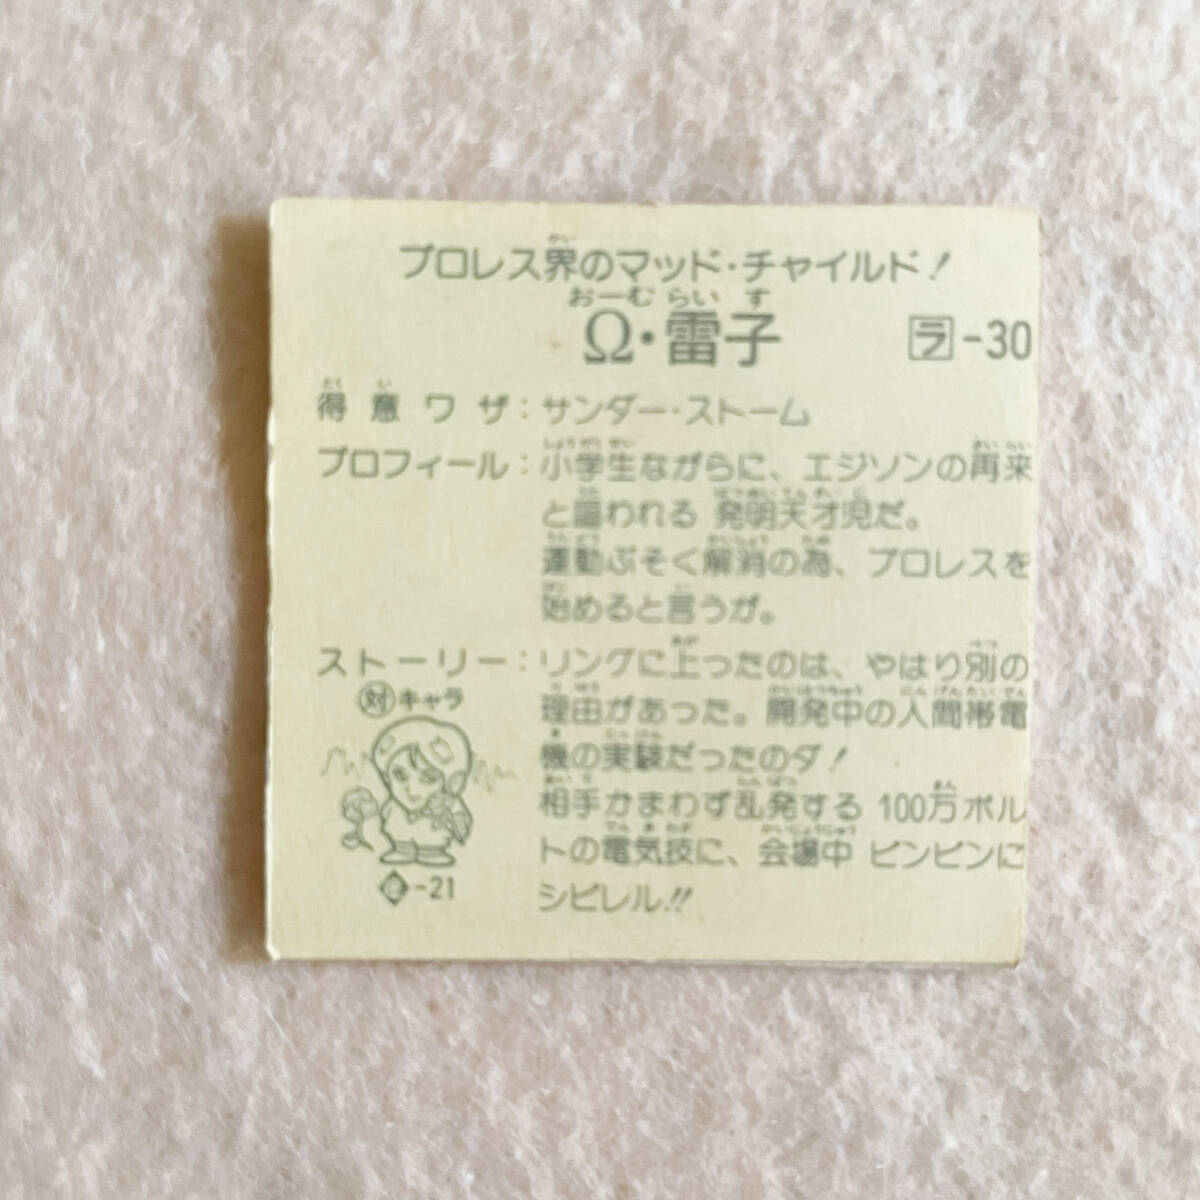 プロレス界のマッド・チャイルド!
Ω・雷子 ラ-30
得意ワザ:サンダー・ストーム
プロフィール:小学生ながらに、エジソンの再来
と謳われる 発明天才児だ。
運動ぶそく解消の為、プロレスを
始めると言うが。
ストーリー:リングに上ったのは、やはり別の
理由があった。開発中の人間帯電
機の実験だったのダ!
相手かまわず乱発する 100万ボル
トの電気技に、会場中 ビンビンに
シビレル!!
対キャラ
-21